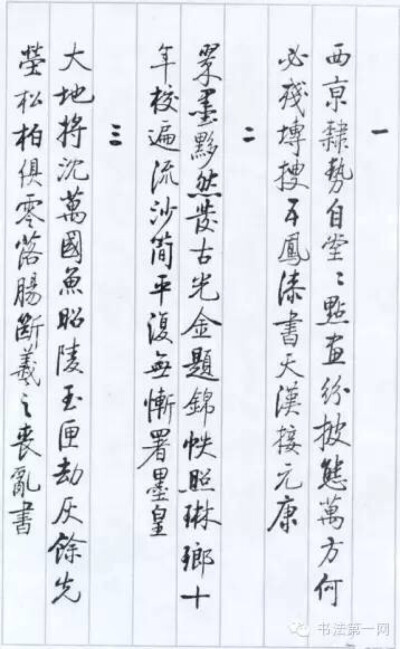 一
西京隸勢自堂〻點畫紛披態萬方何
必殘塼搜五鳳漆書天漢接元康
二
翠墨黟然發古光金題錦帙照琳瑯十
年校遍流沙簡平復無慚署墨皇
三
大地將沈萬國魚昭陵玉匣劫灰餘先
塋松柏俱零落腸斷羲之喪亂書
书法第一网